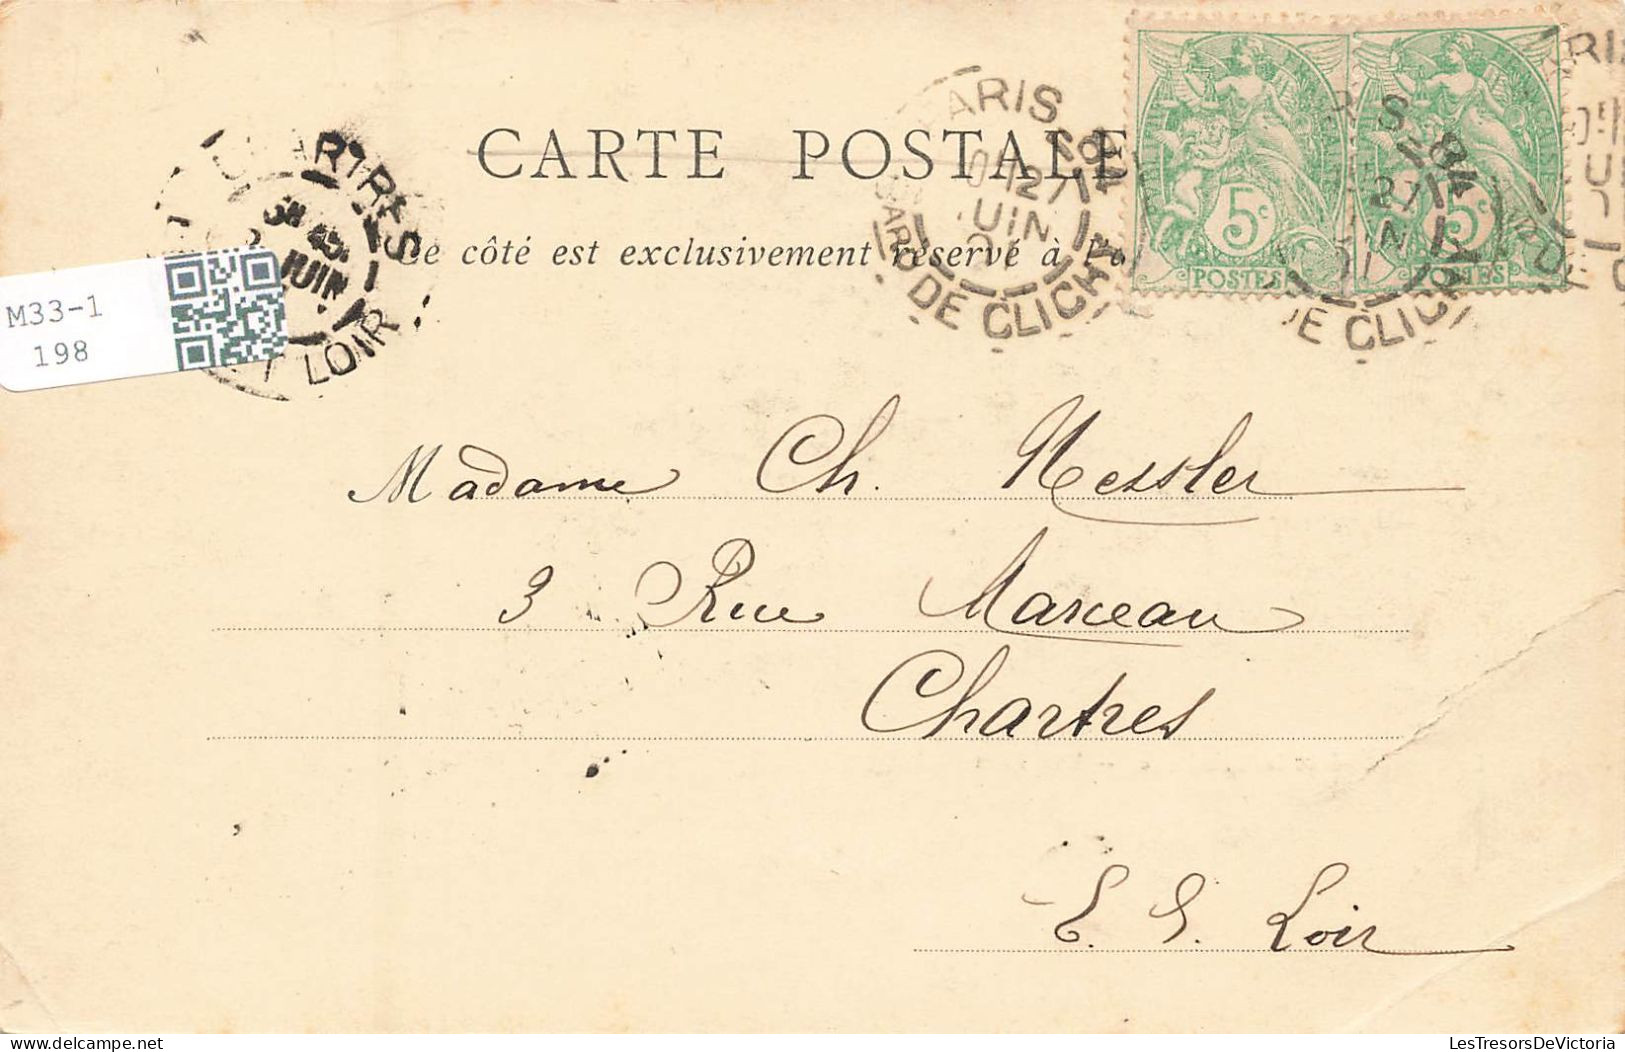 CARTE POSTALE
Ce côté est exclusivement réservé à l'a
PARIS 84
BARD DE CLICHY
12
27
JUIN
01
5c
POSTES
5c
POSTES
DE CLICHY
CHARTRES
JUIN
LOIR
M33-1
198
Madame Ch. Nessler
3 Rue Marceau
Chartres
E. &. Loir
LesTresorsDeVictoria